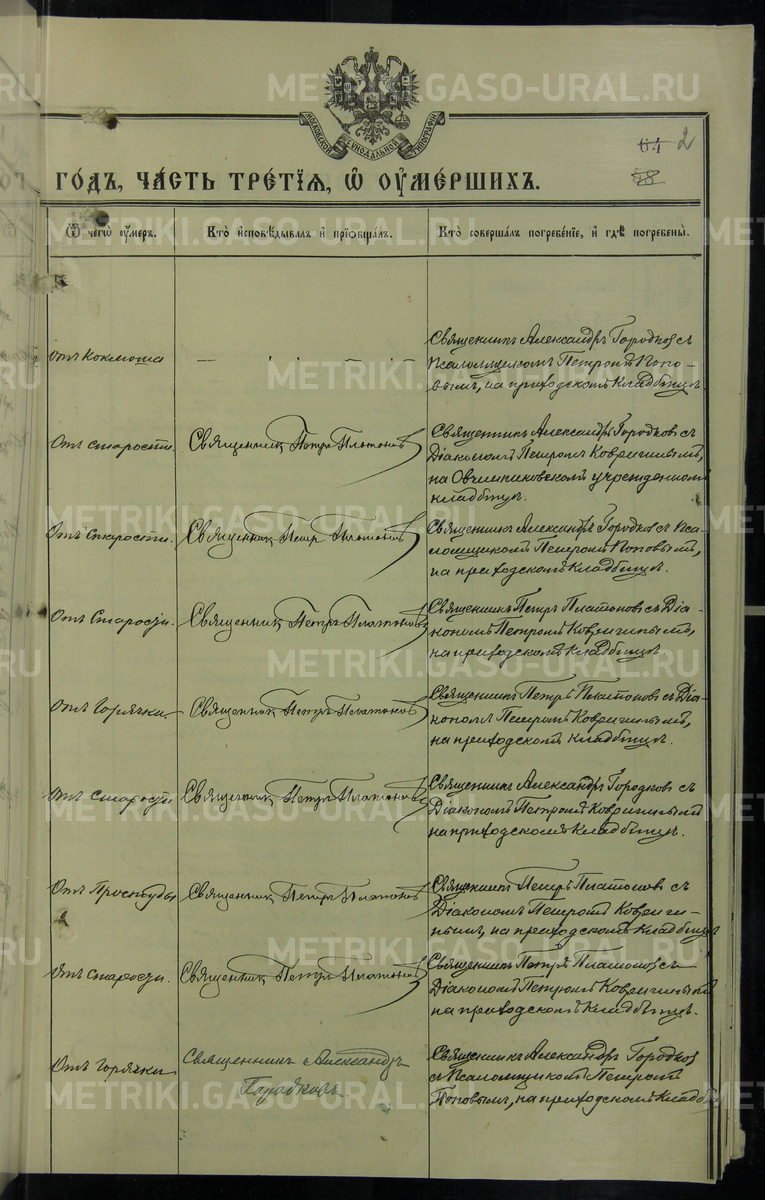 METRIKI.GASO-URAL.RU
МОСКОВСКОЙ СѴНОДАЛЬНОЙ ТИПОГРАФІИ
64 2
годъ, часть третїѧ, ѡ оумершихъ.
Ѿ чегѡ оумеръ.
Кто исповѣдывалъ и прїобщалъ.
Кто совершалъ погребенїе, и гдѣ погребены.
отъ Коклюша
Священникъ Александръ Городковъ съ
Псаломщикомъ Петромъ Попо-
вымъ, на приходскомъ Кладбищѣ.
Отъ старости.
Священник Петръ Платоновъ
Священникъ Александръ Городковъ съ
Діакономъ Петромъ Ковригинымъ,
на Овчинниковскомъ учрежденномъ
кладбищѣ.
Отъ старости.
Священник Петръ Платоновъ
Священникъ Александръ Городковъ съ Пса-
ломщикомъ Петромъ Поповымъ,
на приходскомъ Кладбищѣ.
Отъ Старости.
Священник Петръ Платоновъ
Священникъ Петръ Платоновъ съ Діа-
кономъ Петромъ Ковригинымъ,
на приходскомъ Кладбищѣ
Отъ Горячки.
Священник Петръ Платоновъ
Священникъ Петръ Платоновъ съ Діа-
кономъ Петромъ Ковригинымъ,
на приходскомъ кладбищѣ.
Отъ Старости
Священник Петръ Платоновъ
Священникъ Александръ Городковъ съ
Діакономъ Петромъ Ковригинымъ
на приходскомъ Кладбищѣ.
Отъ Простуды
Священник Петръ Платоновъ
Священникъ Петръ Платоновъ съ
Діакономъ ПетромъКовриги-
нымъ, на приходскомъ Кладбищѣ
Отъ старости.
Священник Петръ Платоновъ
Священникъ Петръ Платоновъ съ
Діакономъ Петромъ Ковригинымъ
на приходскомъ Кладбищѣ.
Отъ Горячки
Священникъ Александръ
Городковъ.
Священникъ Александръ Городков
съ Псаломщикомъ Петромъ
Поповымъ, на приходскомъ Кладб